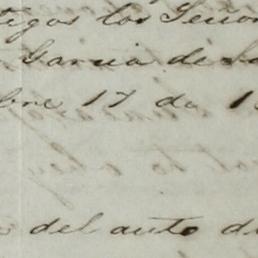 tigos los Señor
Garcia de Sa
bre 17 de 1
del auto de